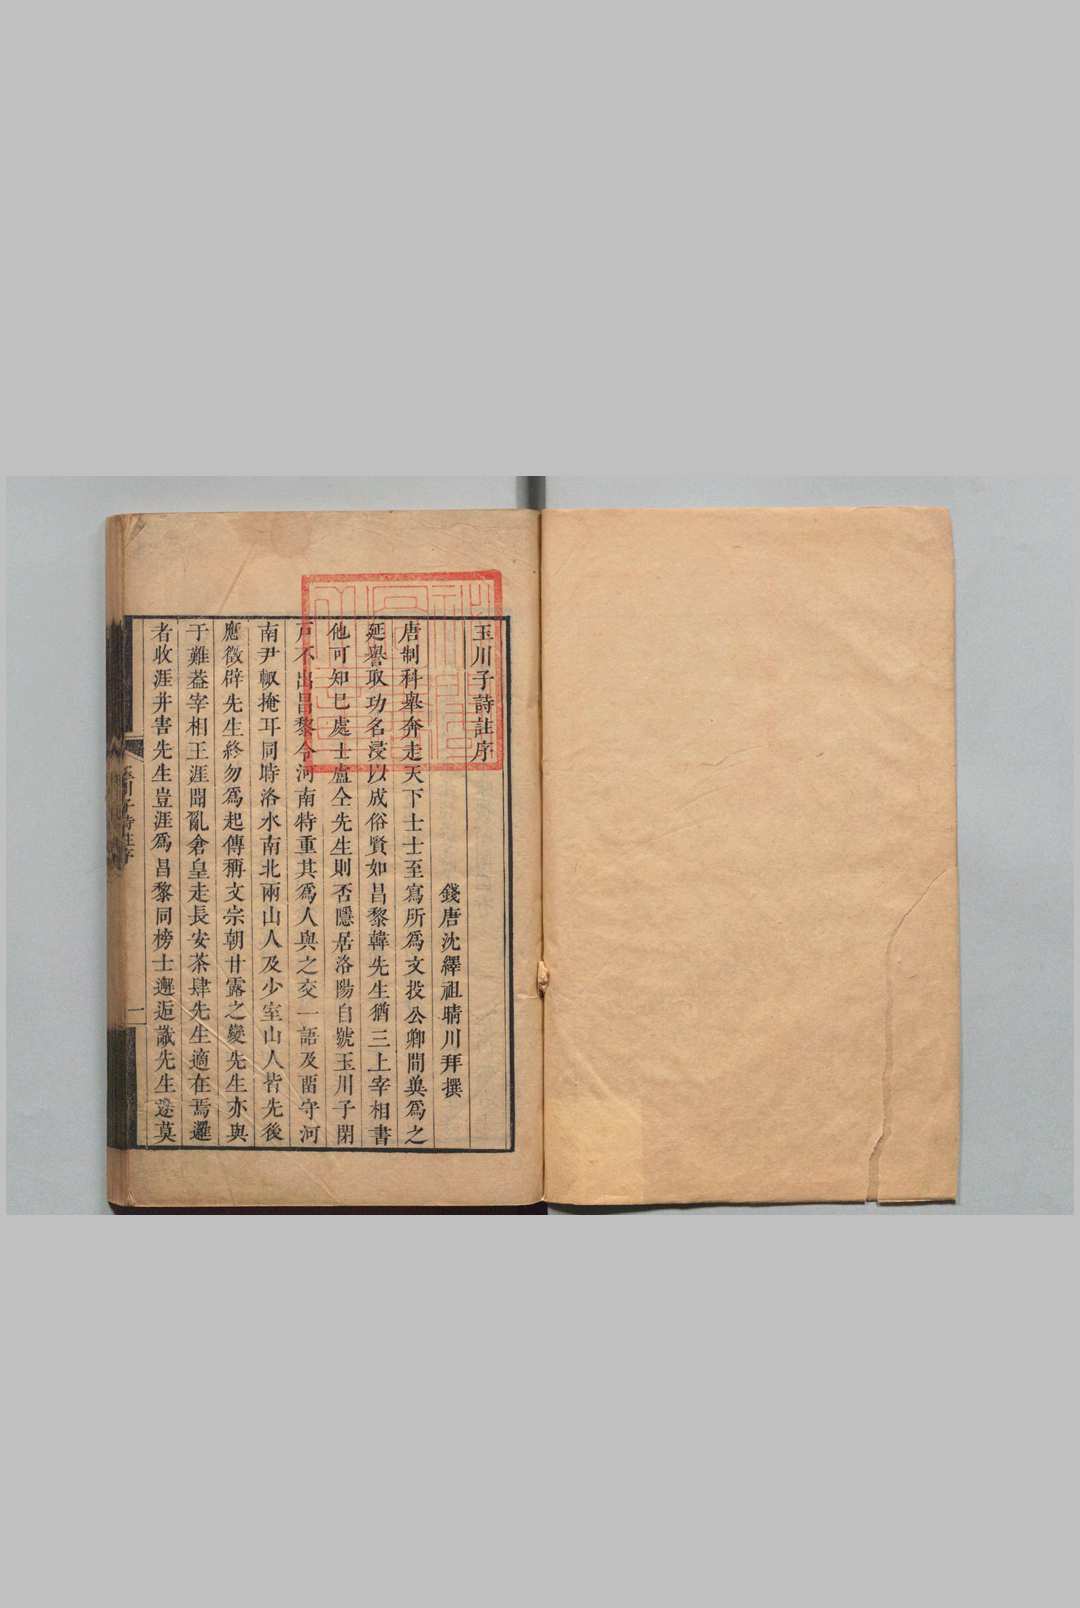 玉川子詩註序
錢唐沈繹祖晴川拜撰
唐制科舉奔走天下士士至寫所爲文投公卿間兾爲之
延譽取功名浸以成俗賢如昌黎韓先生猶三上宰相書
他可知巳處士盧仝先生則否隱居洛陽自號玉川子閉
戸不出昌黎令河南特重其爲人與之交一語及畱守河
南尹輙掩耳同時洛水南北兩山人及少室山人皆先後
應徵辟先生終勿爲起傳稱文宗朝甘露之變先生亦與
于難葢宰相王涯聞亂倉皇走長安茶肆先生適在焉邏
者收涯并害先生豈涯爲昌黎同榜士邂逅識先生遂莫
玉川子詩註序
一